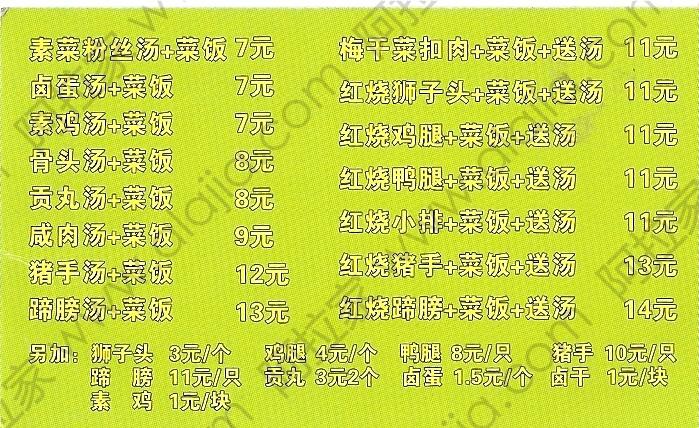 素菜粉丝汤+菜饭 7元
卤蛋汤+菜饭 7元
素鸡汤+菜饭 7元
骨头汤+菜饭 8元
贡丸汤+菜饭 8元
咸肉汤+菜饭 9元
猪手汤+菜饭 12元
蹄膀汤+菜饭 13元
梅干菜扣肉+菜饭+送汤 11元
红烧狮子头+菜饭+送汤 11元
红烧鸡腿+菜饭+送汤 11元
红烧鸭腿+菜饭+送汤 11元
红烧小排+菜饭+送汤 11元
红烧猪手+菜饭+送汤 13元
红烧蹄膀+菜饭+送汤 14元
另加：狮子头 3元/个 鸡腿 4元/个 鸭腿 8元/只 猪手 10元/只
蹄 膀 11元/只 贡丸 3元2个 卤蛋 1.5元/个 卤干 1元/块
素 鸡 1元/块
阿拉家 www.alajia.com